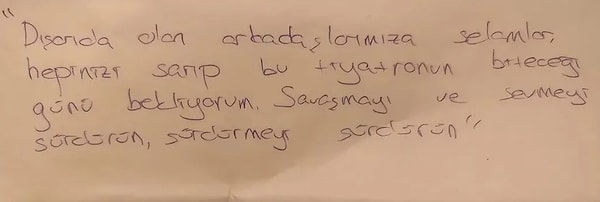 "Dışarıda olan arkadaşlarımıza selamlar,
hepinizi sarıp bu tiyatronun biteceği
günü bekliyorum. Savaşmayı ve sevmeyi
sürdürün, sürdürmeyi sürdürün"